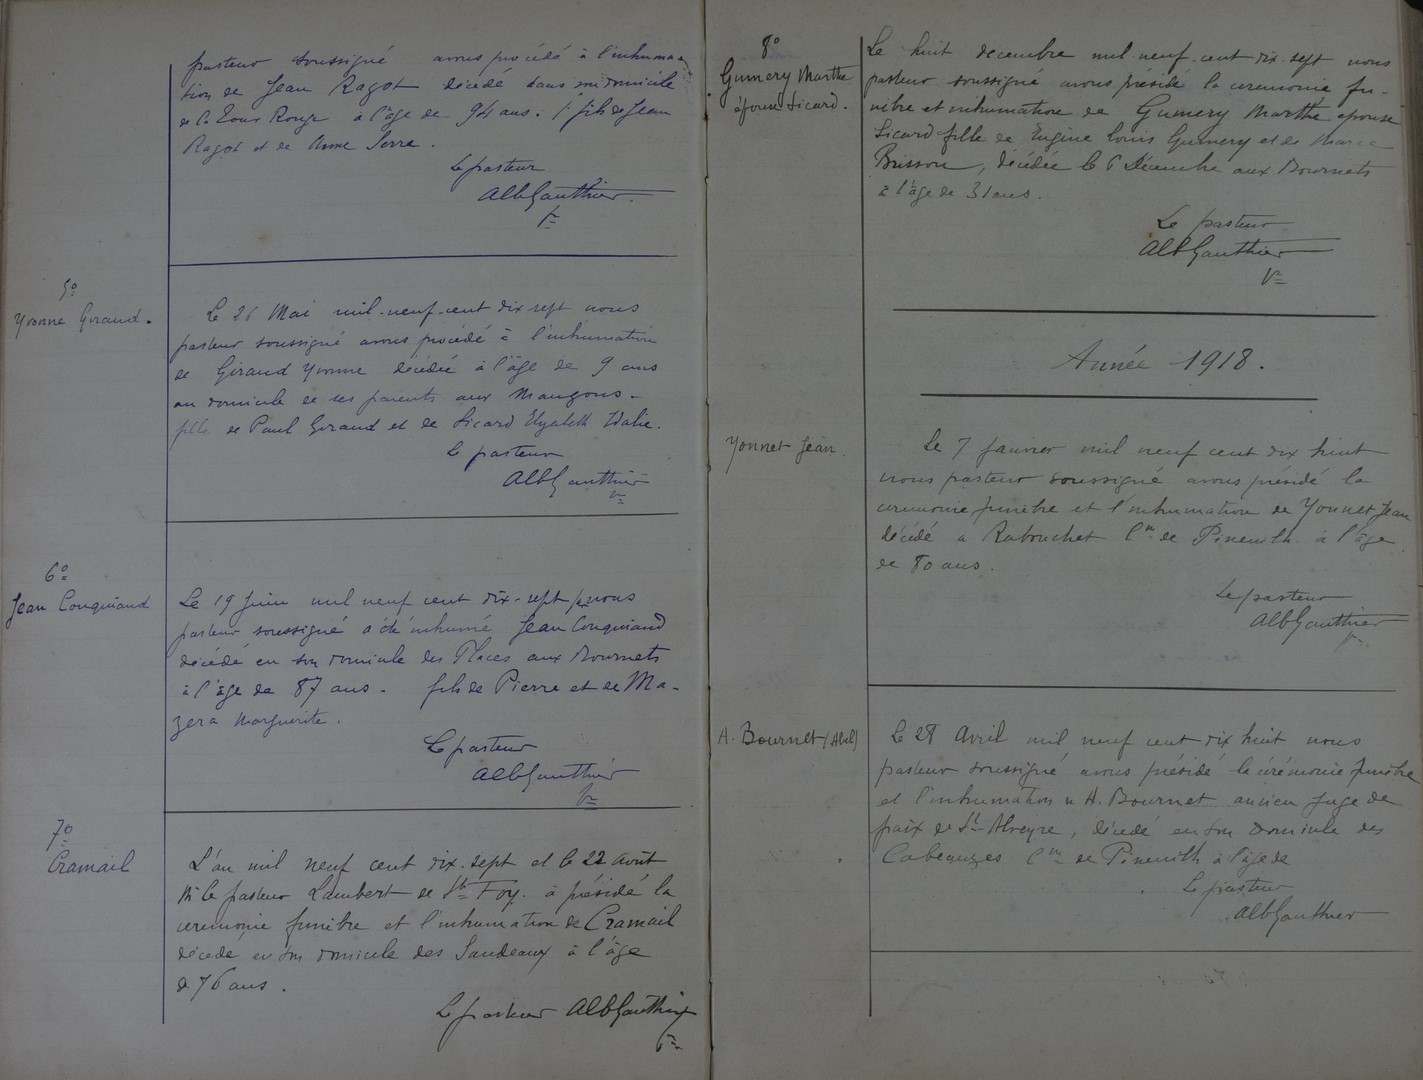 pasteur soussigné avons procédé à l'inhuma-
tion de Jean Ragot décédé dans son domicile
de La Tour Rouge à l'âge de 94 ans. fils de Jean
Ragot et de Anne Serre.
Le pasteur
Alb Gauthier
5º
Yvonne Giraud.
Le 26 Mai mil-neuf-cent dix sept nous
pasteur soussigné avons procédé à l'inhumation
de Giraud Yvonne décédée à l'âge de 9 ans
au domicile de ses parents aux Mangons.
fille de Paul Giraud et de Sicard Elyabeth Idalie.
Le pasteur
Alb Gauthier
6º
Jean Conquiand
Le 19 Juin mil neuf cent dix-sept nous
pasteur soussigné a été inhumé Jean Conquiand
décédé en son domicile des Places aux Bournets
à l'âge de 87 ans. fils de Pierre et de Ma-
zera Marguerite.
Le pasteur
Alb Gauthier
7º
Cramail
L'an mil neuf cent dix-sept et le 22 Août
Mr le pasteur Lambert de Ste Foy. à présidé la
ceremonie funèbre et l'inhumation de Cramail
décédé en son domicile des Sandeaux à l'âge
de 76 ans.
Le pasteur Alb Gauthier
8º
Gumery Marthe
épouse Sicard.
Le huit decembre mil neuf-cent dix-sept nous
pasteur soussigné avons présidé la ceremonie fu-
nèbre et inhumation de Gumery Marthe epouse
Sicard fille de Eugène Louis Gumery et de Marie
Brisson, décédée le 6 Décembre aux Bournets
à l'âge de 31 ans.
Le pasteur
Alb Gauthier
Année 1918.
Yonnet Jean.
Le 7 Janvier mil neuf cent dix huit
nous pasteur soussigné avons présidé la
ceremonie funèbre et l'inhumation de Yonnet Jean
décédé a Rabouchet Cne de Pineuilh à l'âge
de 80 ans.
Le pasteur
Alb Gauthier
A. Bournet (Abel)
Le 28 Avril mil neuf cent dix huit nous
pasteur soussigné avons présidé la cérémonie funèbre
et l'inhumation de A. Bournet ancien juge de
paix de St Alveyre, décédé en son domicile des
Cabeauzes Cne de Pineuilh à l'âge de
Le pasteur
Alb Gauthier